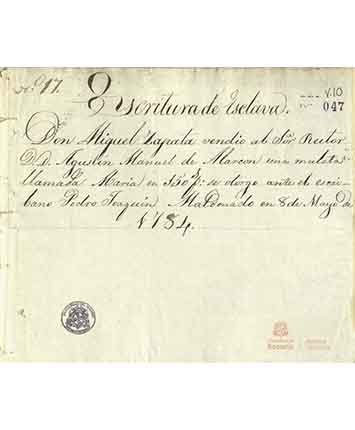 No. 17.
V.10
047
Escritura de Esclava.
Don Miguel Zapata vendio al Sor. Rector
D.D. Agustin Manuel de Alarcon una mulata
llamada Maria en 350 p.s se otorgo ante el escri-
bano Pedro Joaquin Maldonado en 8 de Mayo de
1784.
Rosario